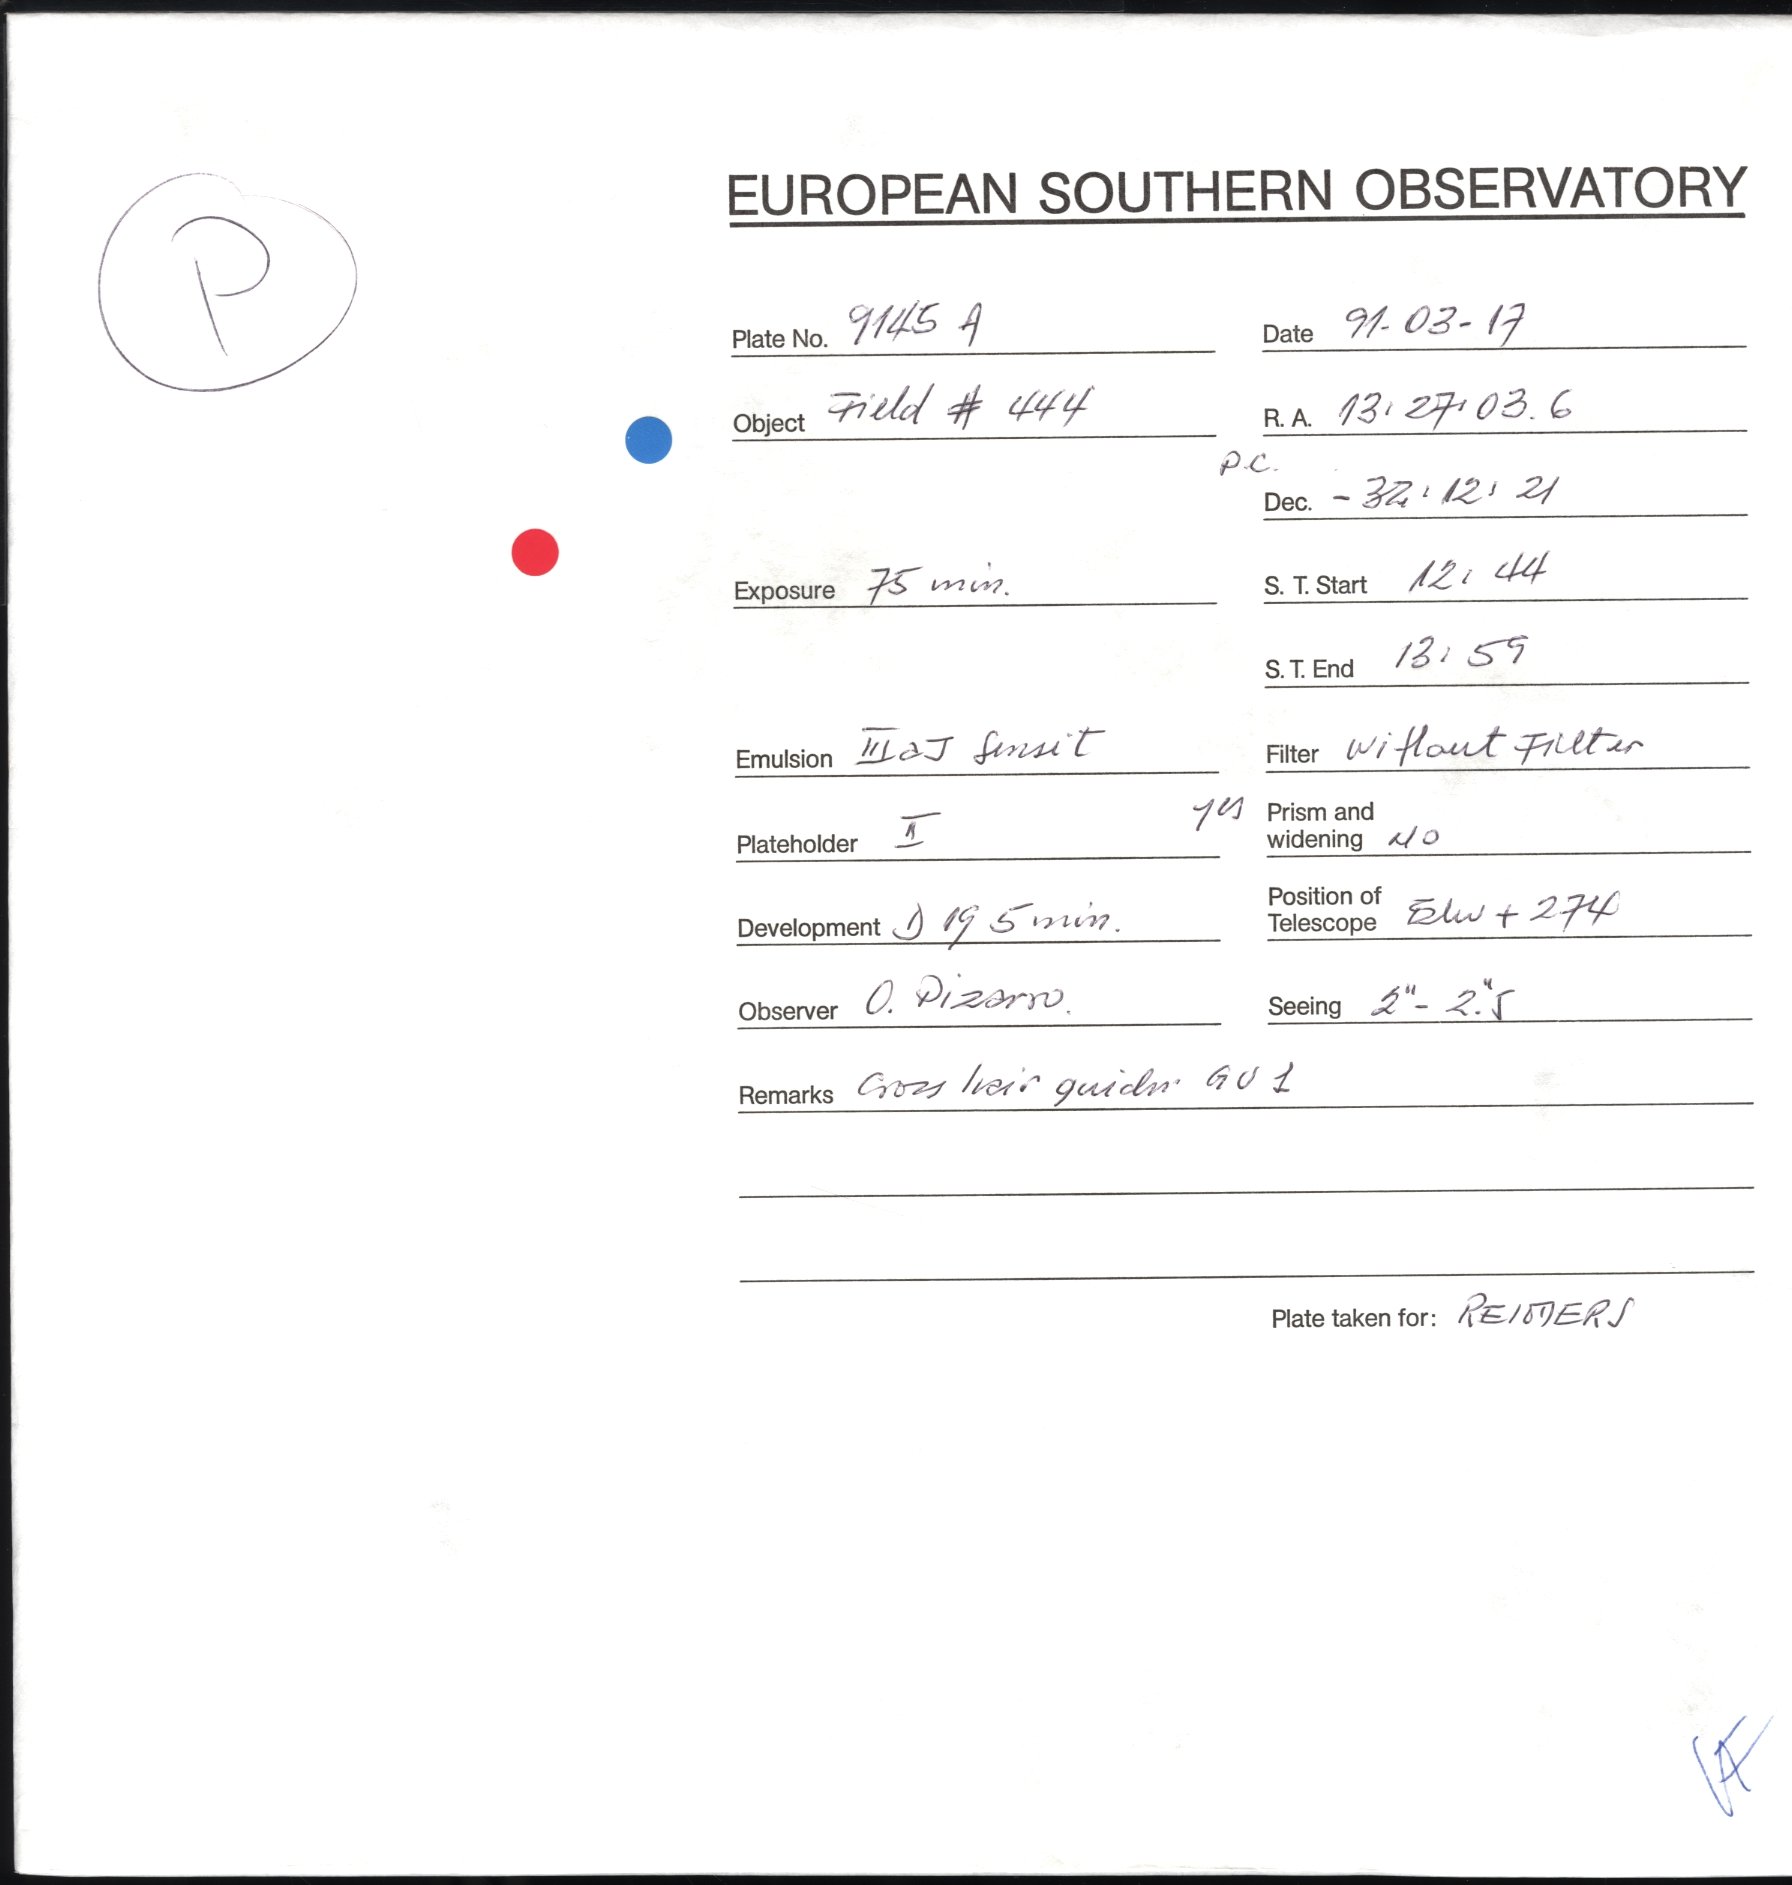 P
EUROPEAN SOUTHERN OBSERVATORY
Plate No. 9145 A
Date 91-03-17
Object Field # 444
R. A. 13:27:03.6
P.C.
Dec. - 32:12:21
Exposure 75 min.
S. T. Start 12:44
S. T. End 13:59
Emulsion IIIaJ Sensit
Filter without Filter
Plateholder II
yes Prism and
widening NO
Development D 19 5 min.
Position of
Telescope + 274
Observer O. Pizarro.
Seeing 2"- 2."5
Remarks Cross hair guider GU 1
Plate taken for: REIMERS